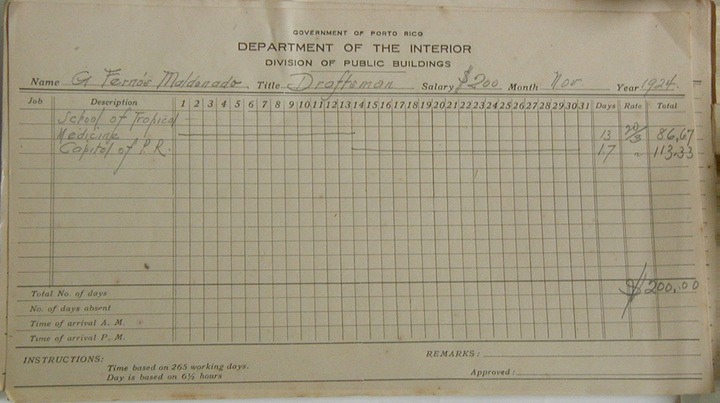 GOVERNMENT OF PORTO RICO
DEPARTMENT OF THE INTERIOR
DIVISION OF PUBLIC BUILDINGS
Name G Fernós Maldonado Title Draftsman Salary $200 Month Nov Year 1924.
Job Description 1 2 3 4 5 6 7 8 9 10 11 12 13 14 15 16 17 18 19 20 21 22 23 24 25 26 27 28 29 30 31 Days Rate Total
School of Tropical
Medicine 13 20/3 86,67
Capitol of P.R. 17 " 113.33
$200.00
Total No. of days
No. of days absent
Time of arrival A. M.
Time of arrival P. M.
INSTRUCTIONS: REMARKS:
Time based on 265 working days.
Day is based on 6½ hours Approved: